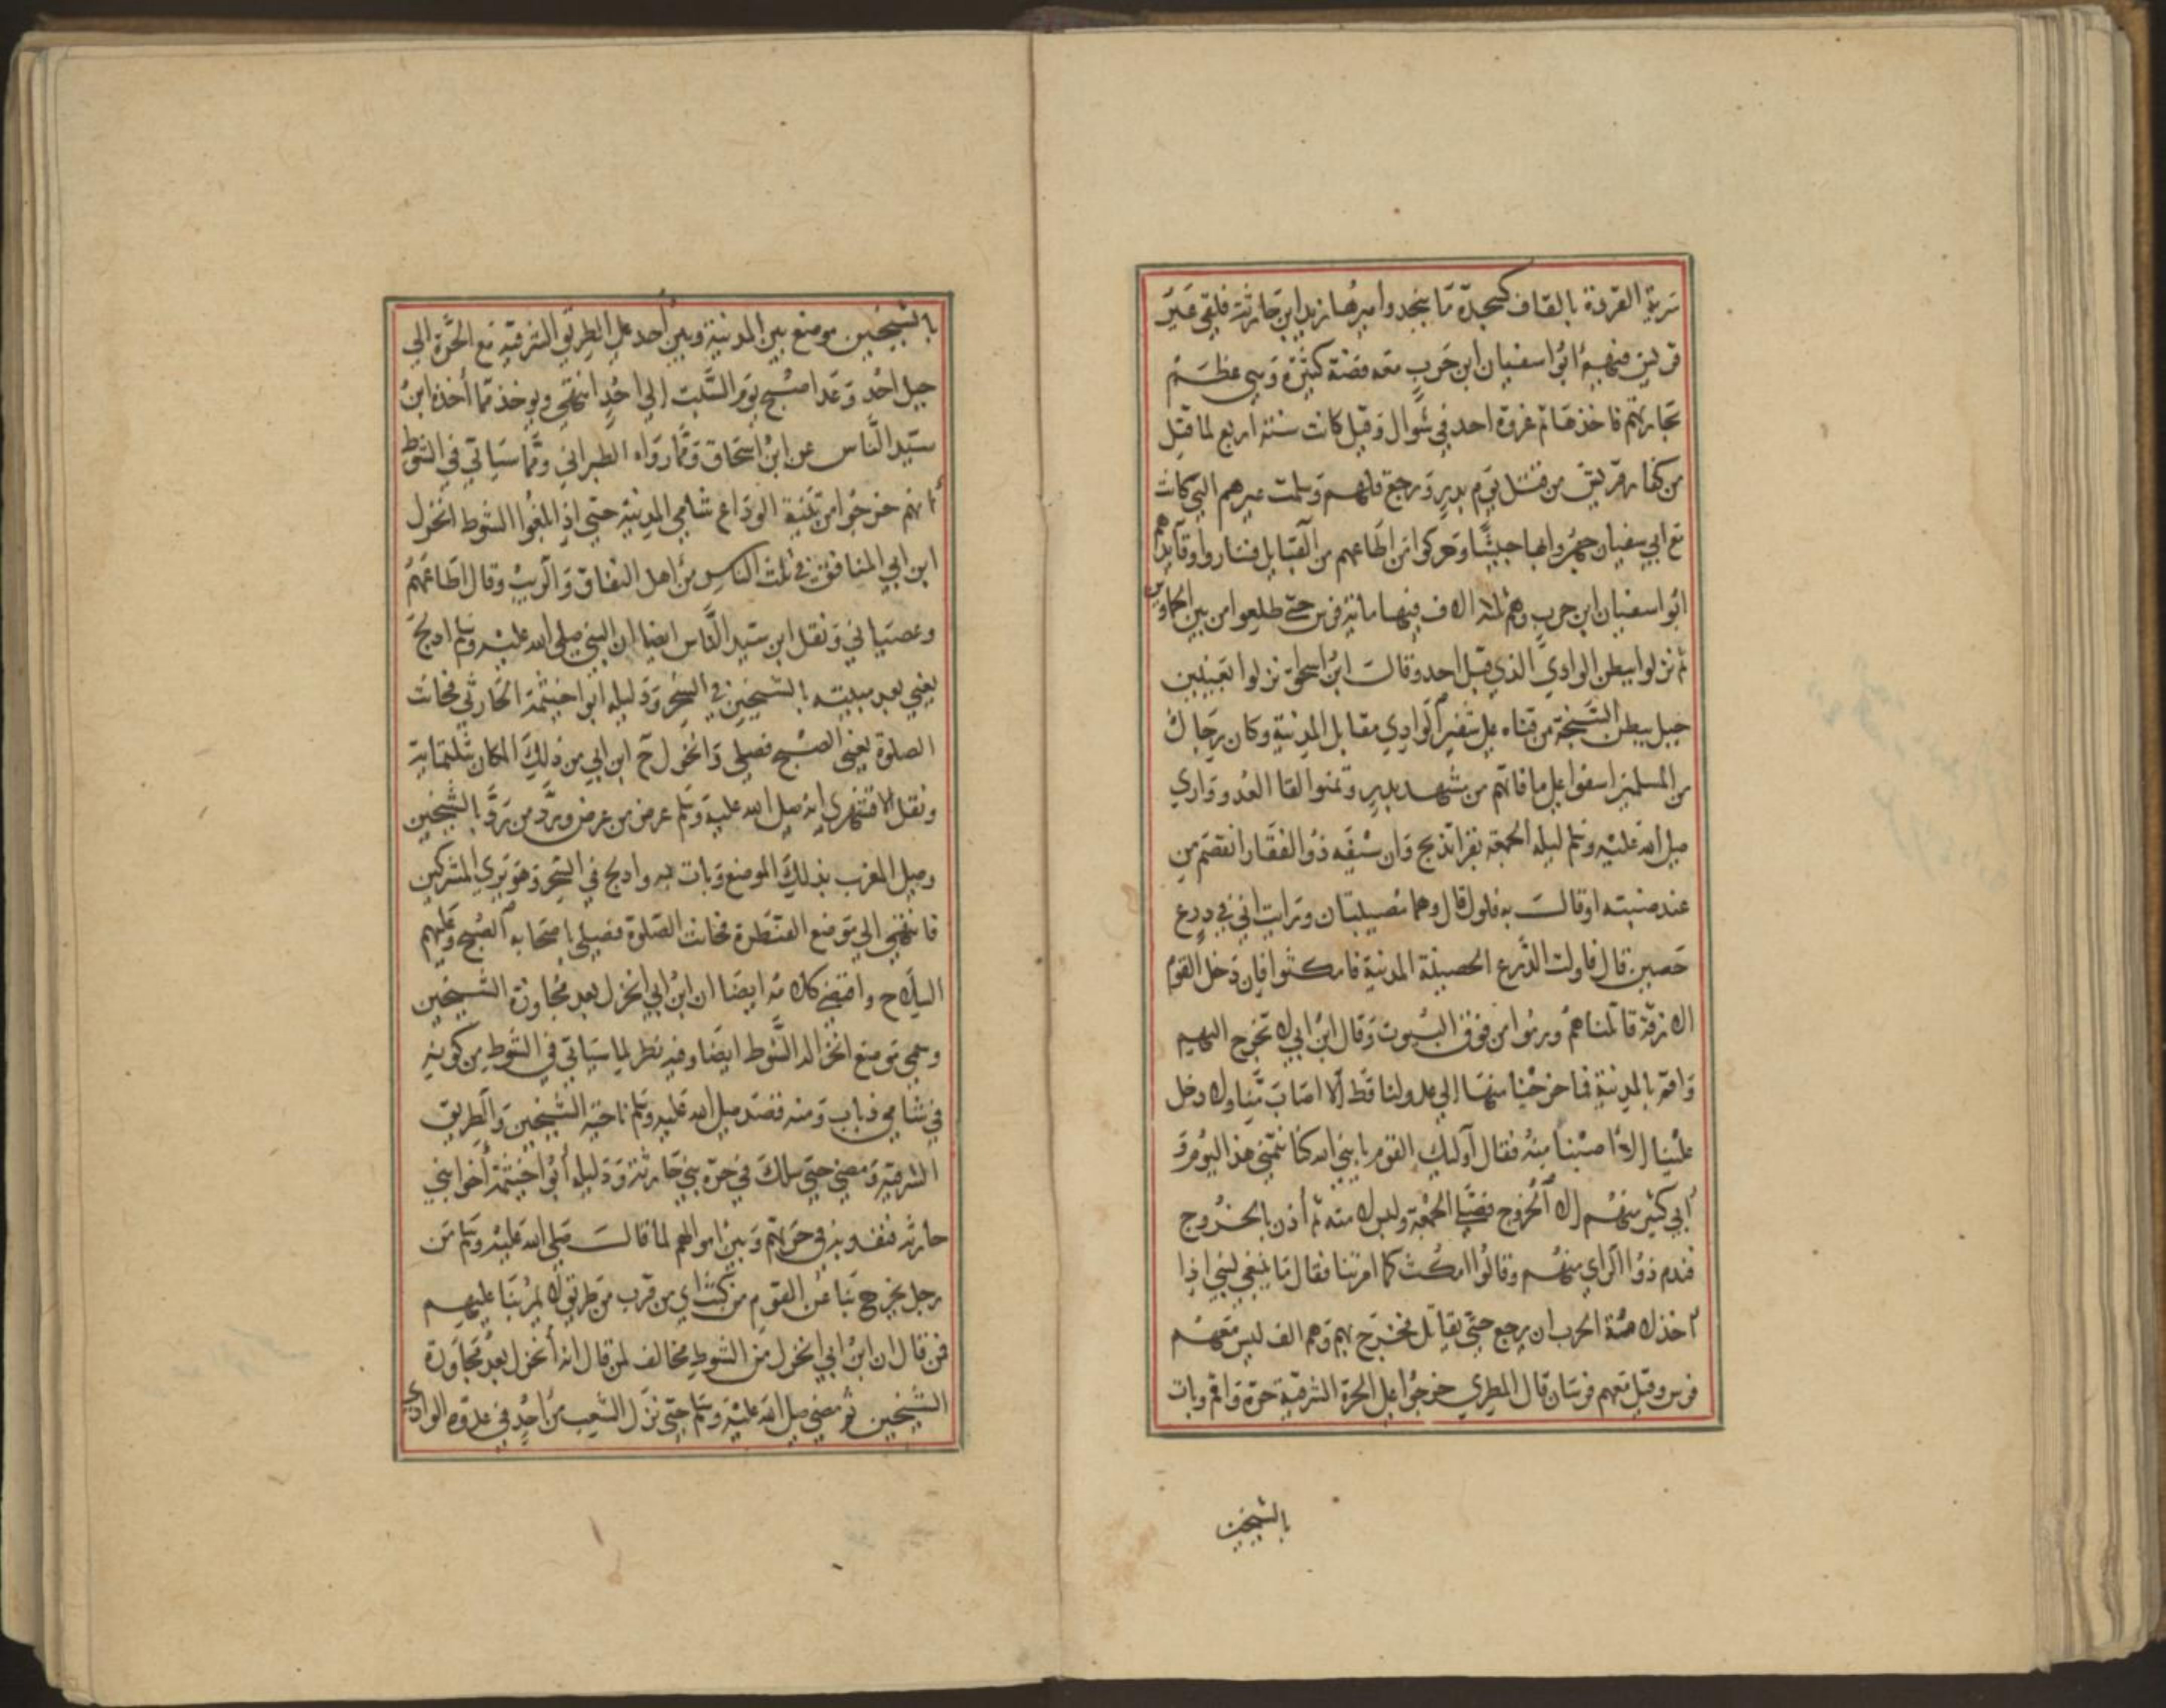 سرية القردة بالقاف كسجدة ما بنجد وامیرها زيد ابن حارثة فلقى عير
قريش فيهم ابوا سفيان ابن حرب معه فضة كثيرة وهي عظم
تجارتهم فاخذها ثم غزوة احد في شوال وقيل كانت سنة اربع لما قتل
من كفار قريش من قتل يوم بدر ورجع فلهم وسلمت عيرهم التي كانت
مع ابي سفيان جهزوا بها جيشا وحركوا من اطاعهم من القبايل فساروا وقايدهم
ابوا سفيان ابن حرب وهم ثلثة الاف فيها مائة فرس حتى طلعوا من بين الحماوين
ثم نزلوا ببطن الوادي الذي قبل احد وقالت ابن اسحاق نزلوا بعينين
جبل ببطن السبخة من قناه على شفير الوادي مقابل المدينة وكان رجالك
من المسلمين اسفوا على ما فاتهم من مشهد بدر وتمنوا لقا العدو واري
صلى الله عليه وسلم ليلة الجمعة بقرا تذبح وان سيفه ذو الفقار انفصم من
عند ضبته اوقالت به فلول قال وهما مصيبتان ورايت اني في درع
حصين قال فاولت الدرع الحصينة المدينة فامكثوا فان دخل القوم
الازقة قاتلناهم ورموا من فوق البيوت وقال ابن ابي لا تخرج اليهم
واقم بالمدينة فما خرجنا منها الى عدو لنا قط الا اصاب منا ولا دخل
علينا الا اصبنا منه فقال اوليك القوم يا بني الله كنا نتمنى هذا اليوم و
ابي كثير منهم الا الخروج فصلى الجمعة ولبس لامته ثم أذن بالخروج
فندم ذوا الراي منهم وقالوا امكث كما امرتنا فقال ما ينبغي لنبي اذا
اخذ لامة الحرب ان يرجع حتى يقاتل فخرج بهم وهم الف ليس معهم
فرس وقيل معهم فرسان قال المطري خرجوا على الحرة الشرقية حرة واقم وبات
بالشيخين
بالشيخين موضع بين المدينة وبين أحد على الطريق الشرقية مع الحرة الى
جبل احد وغدا صبح يوم السبت الى احد انتهى ويوخذ مما أخذه ابن
سيد الناس عن ابن اسحاق ومما رواه الطبراني ومما سياتي في الشوط
انهم خرجوا من ثنية الوداع شامي المدينة حتى اذا بلغوا الشوط انخزل
ابن ابي المنافق في ثلث الناس من اهل النفاق والريب وقال اطاعهم
وعصياني ونقل ابن سيد الناس ايضا ان النبي صلى الله عليه وسلم ادلج
يعني بعد مبيته بالشيخين في السحر ودليله ابوا خيثمة الحارثي فحانت
الصلوة يعني الصبح فصلى وانخزل ح ابن ابي من ذلك المكان بثلثماية
ونقل الاقشهري انه صلى الله عليه وسلم عرض من عرض ورد من رد بالشيخين
وصلى المغرب بذلك الموضع وبات به وادلج في السحر وهو يري المشركين
فانتهى الى موضع القنطرة فحانت الصلوة فصلى باصحابه الصبح وعليهم
السلاح واقتضى كلامه ايضا ان ابن ابي انخزل بعد مجاوزة الشيخين
وسمي موضع انخزاله الشوط ايضا وفيه نظر لما سياتي في الشوط من كونه
في شامي ذباب ومنه قصد صلى الله عليه وسلم ناحية الشيخين والطريق
الشرقية ومضى حتى سلك في حرة بني حارثة ودليله ابوا خيثمة أخوا بني
حارثة فنفذ به في حرتهم وبين اموالهم لما قالت صلى الله عليه وسلم من
رجل يخرج بنا على القوم من كثب اي من قرب من طريق لا يمر بنا عليهم
فمن قال ان ابن ابي انخزل من الشوط مخالف لمن قال انه أنخزل بعد مجاوزة
الشيخين ثم مضى صلى الله عليه وسلم حتى نزل الشعب من احد في عدوة الوادي